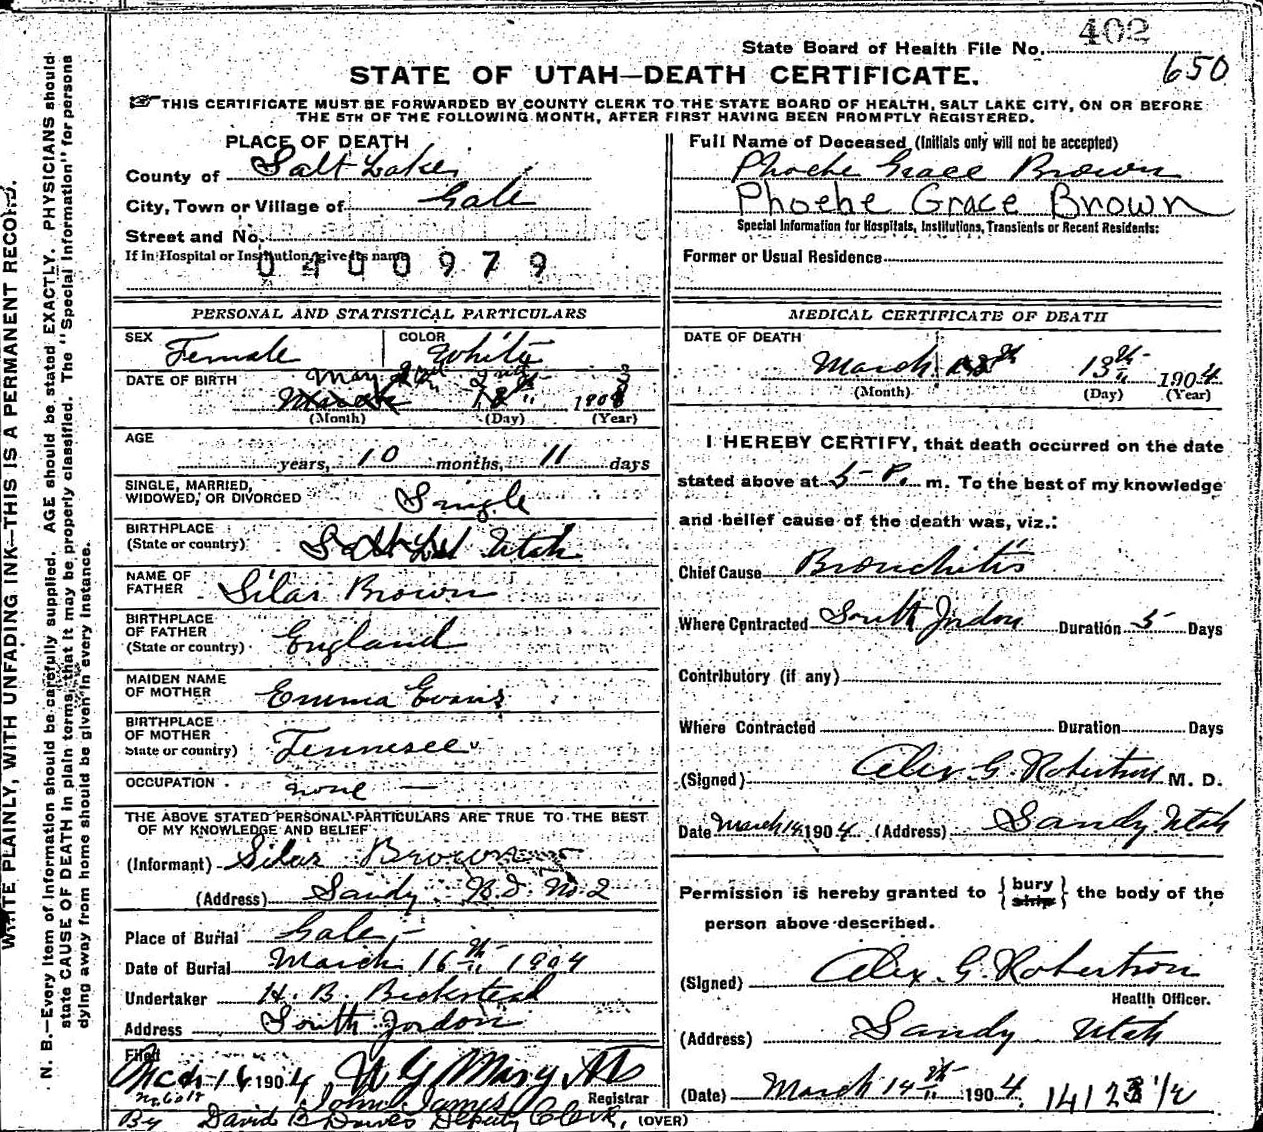 State Board of Health File No. 402
650
STATE OF UTAH—DEATH CERTIFICATE.
THIS CERTIFICATE MUST BE FORWARDED BY COUNTY CLERK TO THE STATE BOARD OF HEALTH, SALT LAKE CITY, ON OR BEFORE
THE 5TH OF THE FOLLOWING MONTH, AFTER FIRST HAVING BEEN PROMPTLY REGISTERED.
WRITE PLAINLY, WITH UNFADING INK—THIS IS A PERMANENT RECORD.
N. B.—Every item of information should be carefully supplied. AGE should be stated EXACTLY. PHYSICIANS should
state CAUSE OF DEATH in plain terms, that it may be properly classified. The "Special Information" for persons
dying away from home should be given in every instance.
PLACE OF DEATH
County of Salt Lake
City, Town or Village of Gale
Street and No.
If in Hospital or Institution, give its name
0400979
PERSONAL AND STATISTICAL PARTICULARS
SEX Female
COLOR White
DATE OF BIRTH May 2nd 3
18th 190
(Month) (Day) (Year)
AGE
years, 10 months, 11 days
SINGLE, MARRIED,
WIDOWED, OR DIVORCED Single
BIRTHPLACE
(State or country) Utah
NAME OF
FATHER Silas Brown
BIRTHPLACE
OF FATHER
(State or country) England
MAIDEN NAME
OF MOTHER Emma Evans
BIRTHPLACE
OF MOTHER
State or country) Tennesee
OCCUPATION none —
THE ABOVE STATED PERSONAL PARTICULARS ARE TRUE TO THE BEST
OF MY KNOWLEDGE AND BELIEF
(Informant) Silas Brown
(Address) Sandy R.D. No. 2
Place of Burial Gale
Date of Burial March 16th 1904
Undertaker H. B. Beckstead
Address South Jordon
Filed
Mch 14 1904
Registrar
John James
By David B Davies Deputy Clerk, (OVER)
Full Name of Deceased (Initials only will not be accepted)
Phoebe Grace Brown
Phoebe Grace Brown
Special Information for Hospitals, Institutions, Transients or Recent Residents:
Former or Usual Residence
MEDICAL CERTIFICATE OF DEATH
DATE OF DEATH
March 13th 1904
(Month) (Day) (Year)
I HEREBY CERTIFY, that death occurred on the date
stated above at 5 P. m. To the best of my knowledge
and belief cause of the death was, viz.:
Chief Cause Bronchitis
Where Contracted South Jordon Duration 5 Days
Contributory (if any)
Where Contracted Duration Days
(Signed) Alex. G. Robertson M. D.
Date March 14 1904 (Address) Sandy Utah
Permission is hereby granted to { bury ship } the body of the
person above described.
(Signed) Alex. G. Robertson
Health Officer.
(Address) Sandy Utah
(Date) March 14th 1904. 14123 1/2